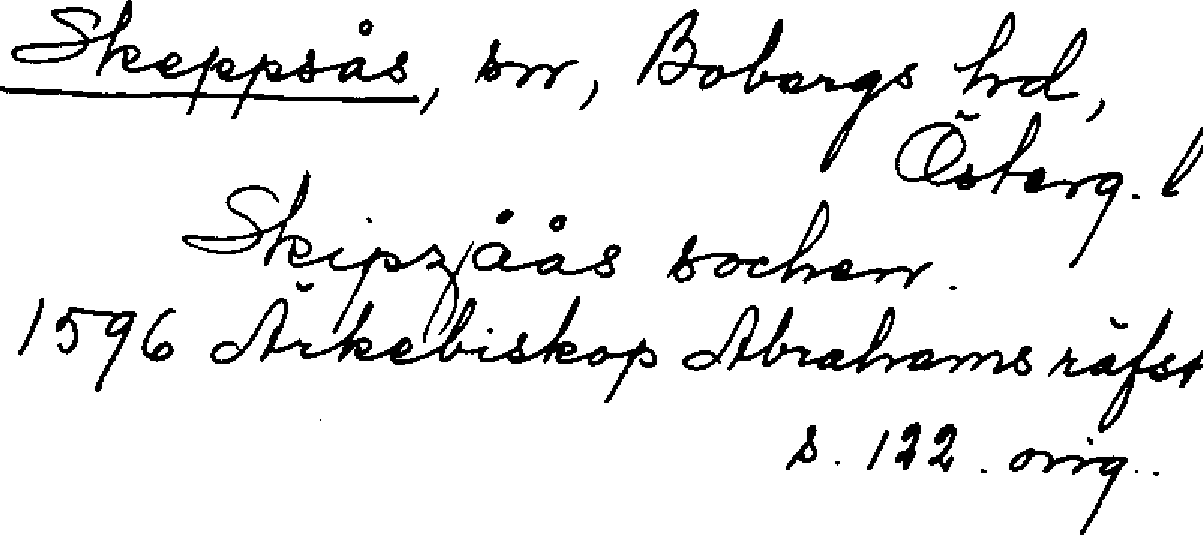 Skeppsås, sn, Bobergs hd,
Österg. l
Skipzååås sochen.
1596 Ärkebiskop Abrahams räfst
s. 122. orig.